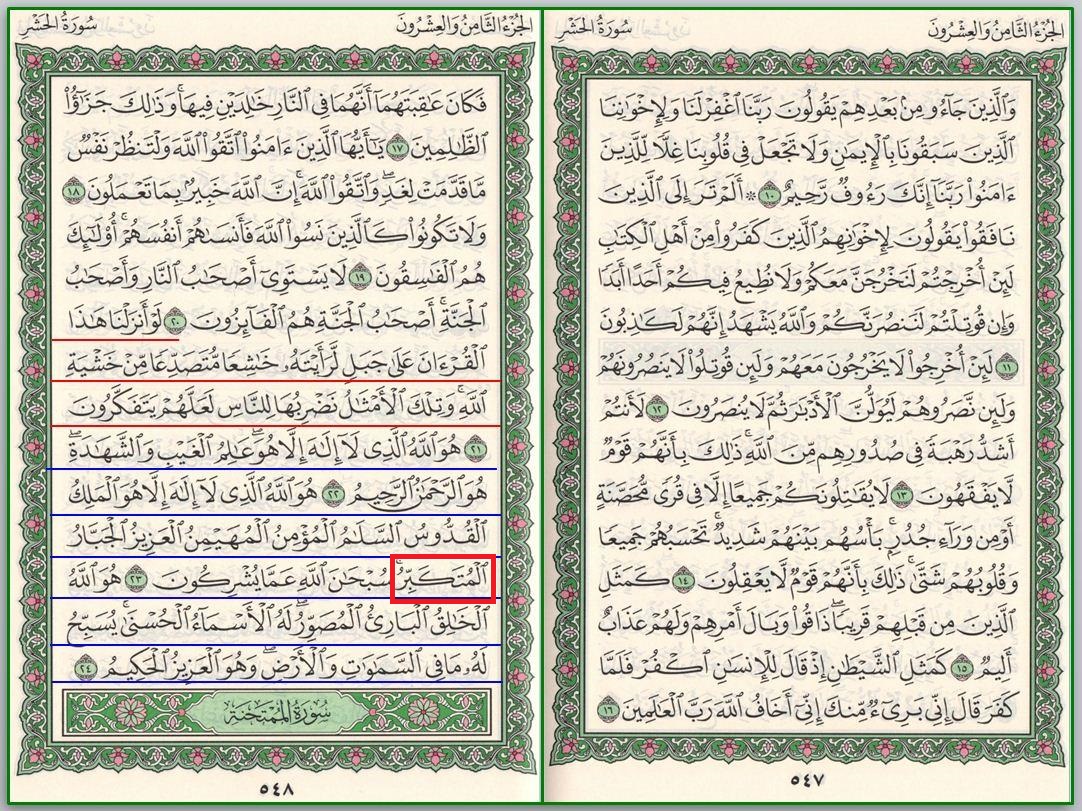 الجزء الثامن والعشرون
سورة الحشر
وَٱلَّذِينَ جَآءُو مِنۢ بَعْدِهِمْ يَقُولُونَ رَبَّنَا ٱغْفِرْ لَنَا وَلِإِخْوَٰنِنَا
ٱلَّذِينَ سَبَقُونَا بِٱلْإِيمَٰنِ وَلَا تَجْعَلْ فِى قُلُوبِنَا غِلًّا لِّلَّذِينَ
ءَامَنُوا۟ رَبَّنَآ إِنَّكَ رَءُوفٌ رَّحِيمٌ ١٠ ۞ أَلَمْ تَرَ إِلَى ٱلَّذِينَ
نَافَقُوا۟ يَقُولُونَ لِإِخْوَٰنِهِمُ ٱلَّذِينَ كَفَرُوا۟ مِنْ أَهْلِ ٱلْكِتَٰبِ
لَئِنْ أُخْرِجْتُمْ لَنَخْرُجَنَّ مَعَكُمْ وَلَا نُطِيعُ فِيكُمْ أَحَدًا أَبَدًا
وَإِن قُوتِلْتُمْ لَنَنصُرَنَّكُمْ وَٱللَّهُ يَشْهَدُ إِنَّهُمْ لَكَٰذِبُونَ
١١ لَئِنْ أُخْرِجُوا۟ لَا يَخْرُجُونَ مَعَهُمْ وَلَئِن قُوتِلُوا۟ لَا يَنصُرُونَهُمْ
وَلَئِن نَّصَرُوهُمْ لَيُوَلُّنَّ ٱلْأَدْبَٰرَ ثُمَّ لَا يُنصَرُونَ ١٢ لَأَنتُمْ
أَشَدُّ رَهْبَةً فِى صُدُورِهِم مِّنَ ٱللَّهِ ۚ ذَٰلِكَ بِأَنَّهُمْ قَوْمٌ
لَّا يَفْقَهُونَ ١٣ لَا يُقَٰتِلُونَكُمْ جَمِيعًا إِلَّا فِى قُرًى مُّحَصَّنَةٍ
أَوْ مِن وَرَآءِ جُدُرٍۭ ۚ بَأْسُهُم بَيْنَهُمْ شَدِيدٌ ۚ تَحْسَبُهُمْ جَمِيعًا
وَقُلُوبُهُمْ شَتَّىٰ ۚ ذَٰلِكَ بِأَنَّهُمْ قَوْمٌ لَّا يَعْقِلُونَ ١٤ كَمَثَلِ
ٱلَّذِينَ مِن قَبْلِهِمْ قَرِيبًا ۖ ذَاقُوا۟ وَبَالَ أَمْرِهِمْ وَلَهُمْ عَذَابٌ
أَلِيمٌ ١٥ كَمَثَلِ ٱلشَّيْطَٰنِ إِذْ قَالَ لِلْإِنسَٰنِ ٱكْفُرْ فَلَمَّا
كَفَرَ قَالَ إِنِّى بَرِىٓءٌ مِّنكَ إِنِّىٓ أَخَافُ ٱللَّهَ رَبَّ ٱلْعَٰلَمِينَ ١٦
٥٤٧
الجزء الثامن والعشرون
سورة الحشر
فَكَانَ عَٰقِبَتَهُمَآ أَنَّهُمَا فِى ٱلنَّارِ خَٰلِدَيْنِ فِيهَا ۚ وَذَٰلِكَ جَزَٰٓؤُا۟
ٱلظَّٰلِمِينَ ١٧ يَٰٓأَيُّهَا ٱلَّذِينَ ءَامَنُوا۟ ٱتَّقُوا۟ ٱللَّهَ وَلْتَنظُرْ نَفْسٌ
مَّا قَدَّمَتْ لِغَدٍ ۖ وَٱتَّقُوا۟ ٱللَّهَ ۚ إِنَّ ٱللَّهَ خَبِيرٌۢ بِمَا تَعْمَلُونَ ١٨
وَلَا تَكُونُوا۟ كَٱلَّذِينَ نَسُوا۟ ٱللَّهَ فَأَنسَىٰهُمْ أَنفُسَهُمْ ۚ أُو۟لَٰٓئِكَ
هُمُ ٱلْفَٰسِقُونَ ١٩ لَا يَسْتَوِىٓ أَصْحَٰبُ ٱلنَّارِ وَأَصْحَٰبُ
ٱلْجَنَّةِ ۚ أَصْحَٰبُ ٱلْجَنَّةِ هُمُ ٱلْفَآئِزُونَ ٢٠ لَوْ أَنزَلْنَا هَٰذَا
ٱلْقُرْءَانَ عَلَىٰ جَبَلٍ لَّرَأَيْتَهُۥ خَٰشِعًا مُّتَصَدِّعًا مِّنْ خَشْيَةِ
ٱللَّهِ ۚ وَتِلْكَ ٱلْأَمْثَٰلُ نَضْرِبُهَا لِلنَّاسِ لَعَلَّهُمْ يَتَفَكَّرُونَ
٢١ هُوَ ٱللَّهُ ٱلَّذِى لَآ إِلَٰهَ إِلَّا هُوَ ۖ عَٰلِمُ ٱلْغَيْبِ وَٱلشَّهَٰدَةِ ۖ
هُوَ ٱلرَّحْمَٰنُ ٱلرَّحِيمُ ٢٢ هُوَ ٱللَّهُ ٱلَّذِى لَآ إِلَٰهَ إِلَّا هُوَ ٱلْمَلِكُ
ٱلْقُدُّوسُ ٱلسَّلَٰمُ ٱلْمُؤْمِنُ ٱلْمُهَيْمِنُ ٱلْعَزِيزُ ٱلْجَبَّارُ
ٱلْمُتَكَبِّرُ ۚ سُبْحَٰنَ ٱللَّهِ عَمَّا يُشْرِكُونَ ٢٣ هُوَ ٱللَّهُ
ٱلْخَٰلِقُ ٱلْبَارِئُ ٱلْمُصَوِّرُ ۖ لَهُ ٱلْأَسْمَآءُ ٱلْحُسْنَىٰ ۚ يُسَبِّحُ
لَهُۥ مَا فِى ٱلسَّمَٰوَٰتِ وَٱلْأَرْضِ ۖ وَهُوَ ٱلْعَزِيزُ ٱلْحَكِيمُ ٢٤
سورة الممتحنة
٥٤٨